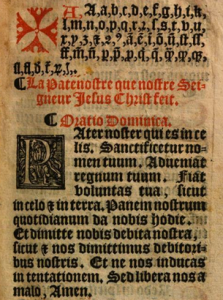 A, A, a, b, c, d, e, f, g, h, i, k,
l, m, n, o, p, q, r, ſ, s, t, v, u,
x, y, z,
La Patenostre que nostre Sei-
gneur Jesus Christ feit.
Oratio Dominica.
Pater noster qui es in ce
lis. Sanctificetur no-
men tuum. Adueniat
regnum tuum. Fiat
voluntas tua, sicut
in celo & in terra. Panem nostrum
quotidianum da nobis hodie.
Et dimitte nobis debita nostra,
sicut & nos dimittimus debitori-
bus nostris. Et ne nos inducas
in tentationem. Sed libera nos a
malo, Amen.